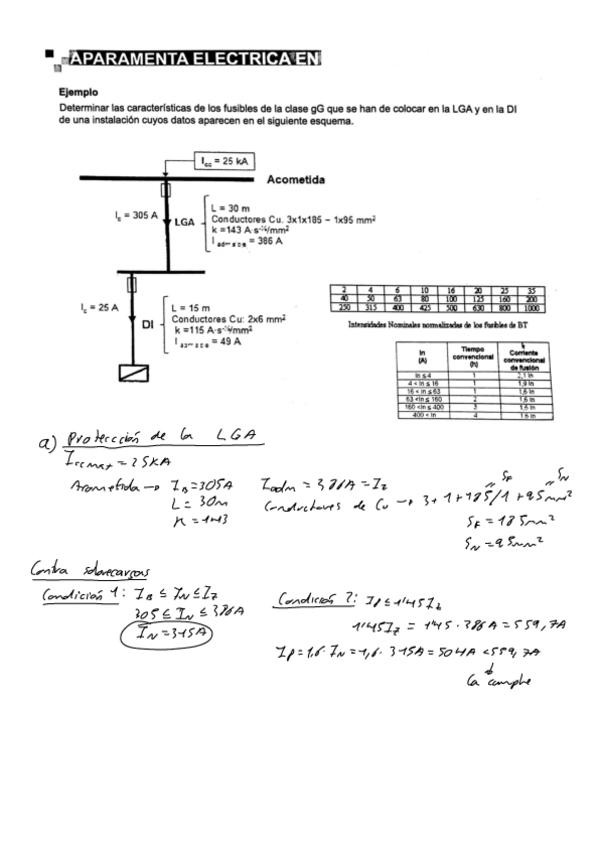 APARAMENTA ELECTRICA EN
Ejemplo
Determinar las características de los fusibles de la clase gG que se han de colocar en la LGA y en la DI
de una instalación cuyos datos aparecen en el siguiente esquema.
Icc = 25 kA
Acometida
Ic = 305 A
LGA
L = 30 m
Conductores Cu. 3x1x185 – 1x95 mm²
k =143 A·s⁻¹⁄²/mm²
= 386 A
Ic = 25 A
DI
L = 15 m
Conductores Cu: 2x6 mm²
k =115 A·s⁻¹⁄²/mm²
= 49 A
2 4 6 10 16 20 25 35
40 50 63 80 100 125 160 200
250 315 400 425 500 630 800 1000
Intensidades Nominales normalizadas de los fusibles de BT
In (A) Tiempo convencional (h) Corriente convencional de fusión
In ≤ 4 1 2,1 In
4 < In ≤ 16 1 1,9 In
16 < In ≤ 63 1 1,6 In
63 <In ≤ 160 2 1,6 In
160 <In ≤ 400 3 1,6 In
400 < In 4 1,6 In
a) Protección de la LGA
Iccmax = 25kA
Acometida → IB = 305A
L = 30m
K = 143
Iadm = 386A = Iz
Conductores de Cu → 3+1+185/1+95mm²
SF
SN
SF = 185mm²
SN = 95mm²
Contra sobrecargas
Condición 1: IB ≤ IN ≤ Iz
305 ≤ IN ≤ 386A
IN = 315A
Condición 2: If ≤ 1'45Iz
1'45Iz = 1'45 · 386A = 559,7A
If = 1,6 · IN = 1,6 · 315A = 504A < 559,7A
La cumple